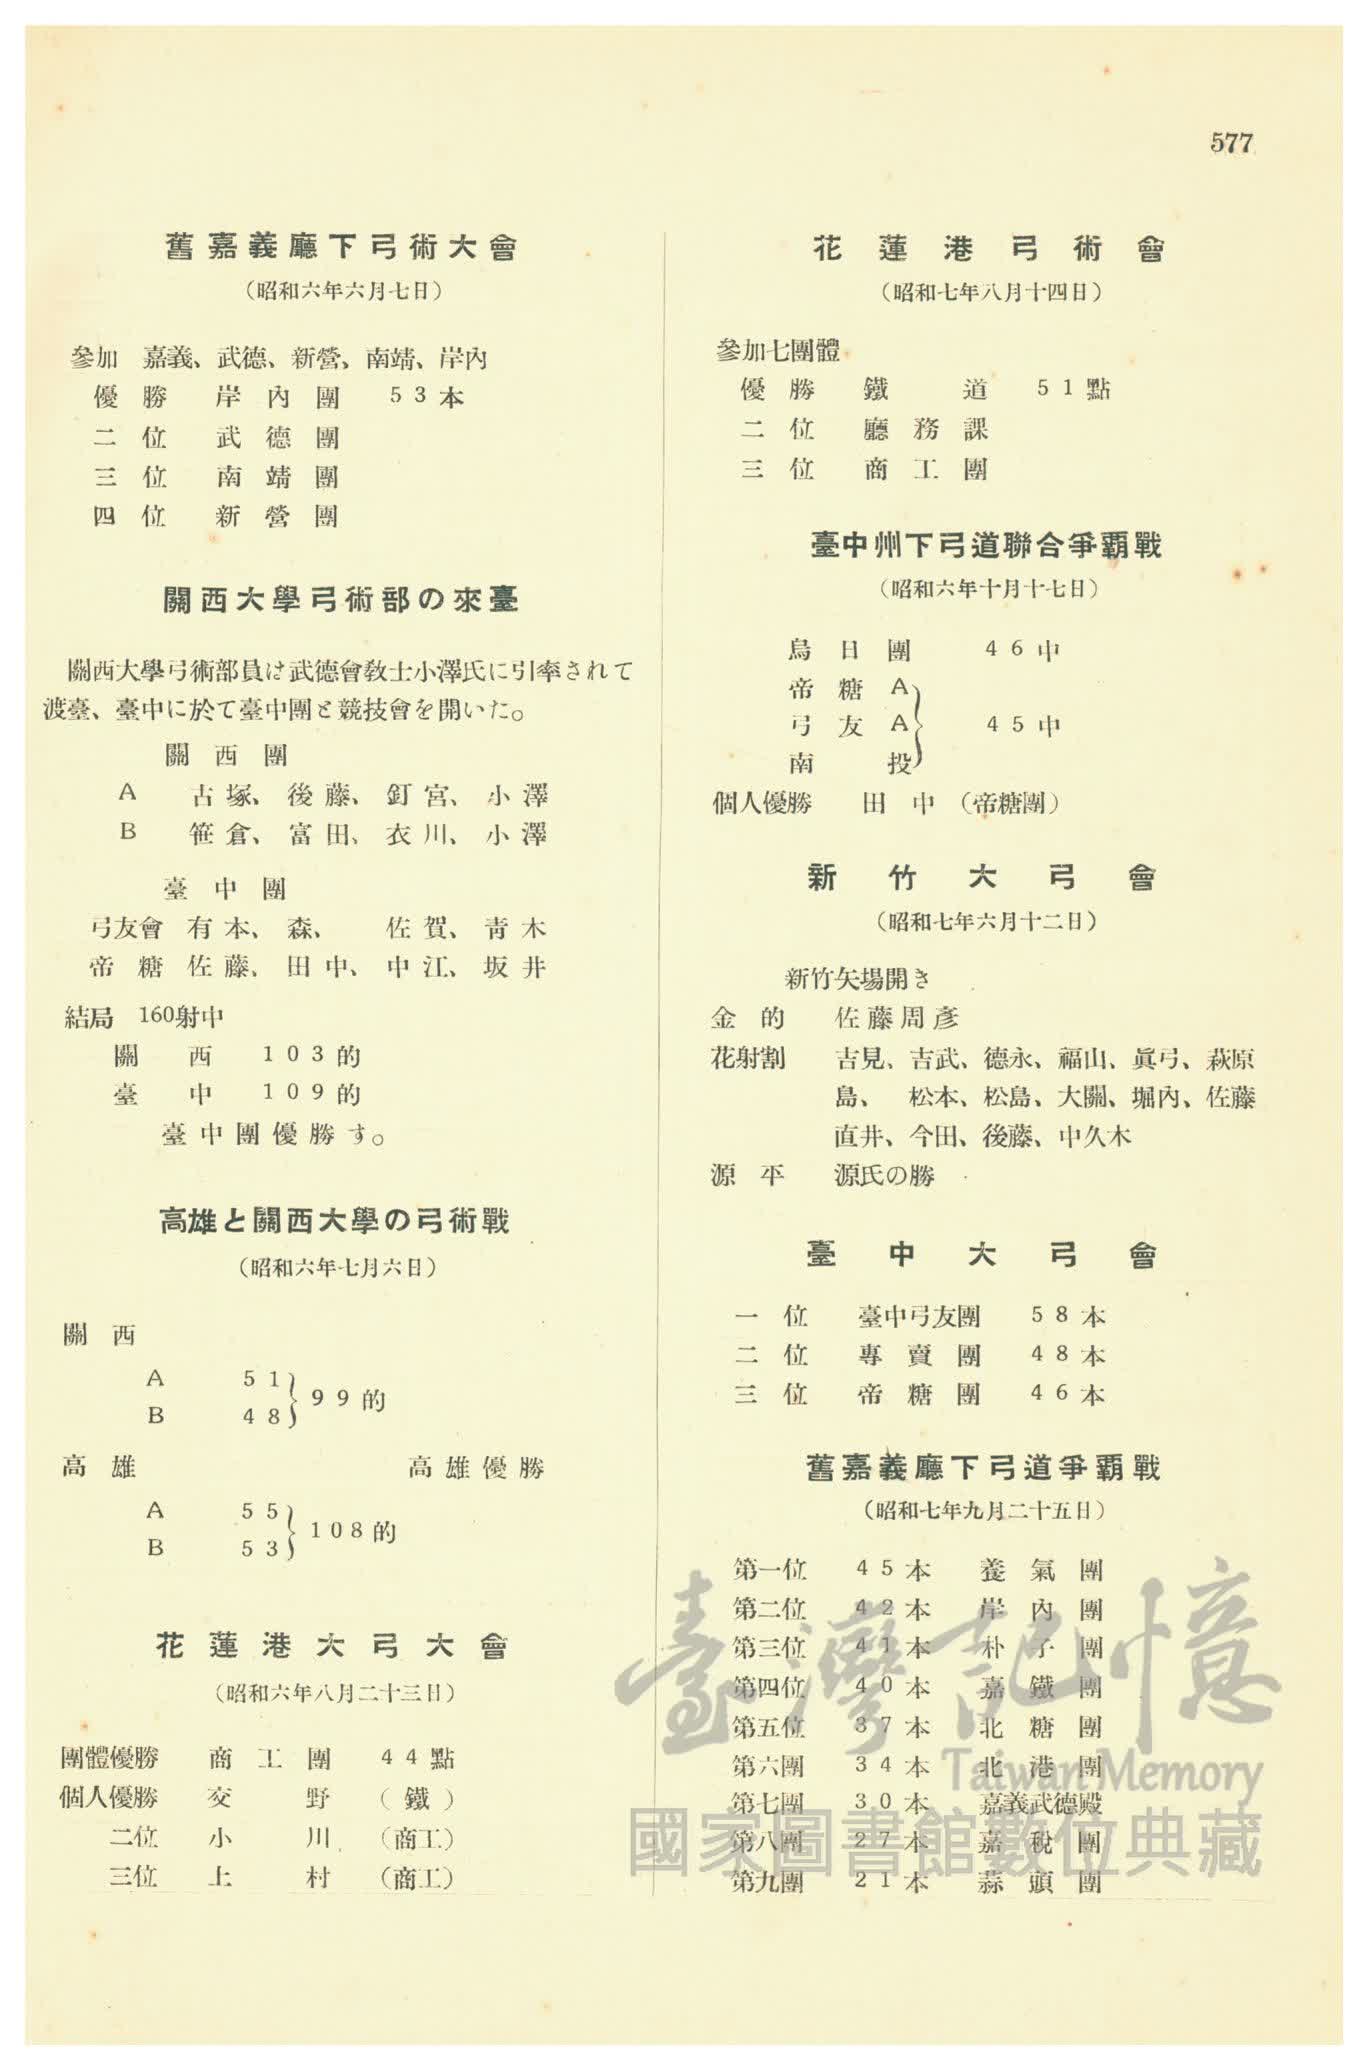 577
舊嘉義廳下弓術大會
（昭和六年六月七日）
參加 嘉義、武德、新營、南靖、岸內
優勝 岸內團 53本
二位 武德團
三位 南靖團
四位 新營團
關西大學弓術部の來臺
關西大學弓術部員は武德會敎士小澤氏に引率されて
渡臺、臺中に於て臺中團と競技會を開いた。
關西團
A 古塚、後藤、釘宮、小澤
B 笹倉、富田、衣川、小澤
臺中團
弓友會 有本、森、佐賀、靑木
帝糖 佐藤、田中、中江、坂井
結局 160射中
關西 103的
臺中 109的
臺中團優勝す。
高雄と關西大學の弓術戰
（昭和六年七月六日）
關西
A 51
B 48
99的
高雄 高雄優勝
A 55
B 53
108的
花蓮港大弓大會
（昭和六年八月二十三日）
團體優勝 商工團 44點
個人優勝 交野 （鐵）
二位 小川 （商工）
三位 上村 （商工）
花蓮港弓術會
（昭和七年八月十四日）
參加七團體
優勝 鐵道 51點
二位 廳務課
三位 商工團
臺中州下弓道聯合爭覇戰
（昭和六年十月十七日）
烏日團 46中
帝糖A
弓友A 45中
南投
個人優勝 田中（帝糖團）
新竹大弓會
（昭和七年六月十二日）
新竹矢場開き
金的 佐藤周彥
花射割 吉見、吉武、德永、福山、眞弓、萩原
島、松本、松島、大關、堀內、佐藤
直井、今田、後藤、中久木
源平 源氏の勝
臺中大弓會
一位 臺中弓友團 58本
二位 專賣團 48本
三位 帝糖團 46本
舊嘉義廳下弓道爭覇戰
（昭和七年九月二十五日）
第一位 45本 養氣團
第二位 42本 岸內團
第三位 41本 朴子團
第四位 40本 嘉鐵團
第五位 37本 北糖團
第六團 34本 北港團
第七團 30本 嘉義武德殿
第八團 27本 嘉稅團
第九團 21本 蒜頭團
臺灣記憶
Taiwan Memory
國家圖書館數位典藏